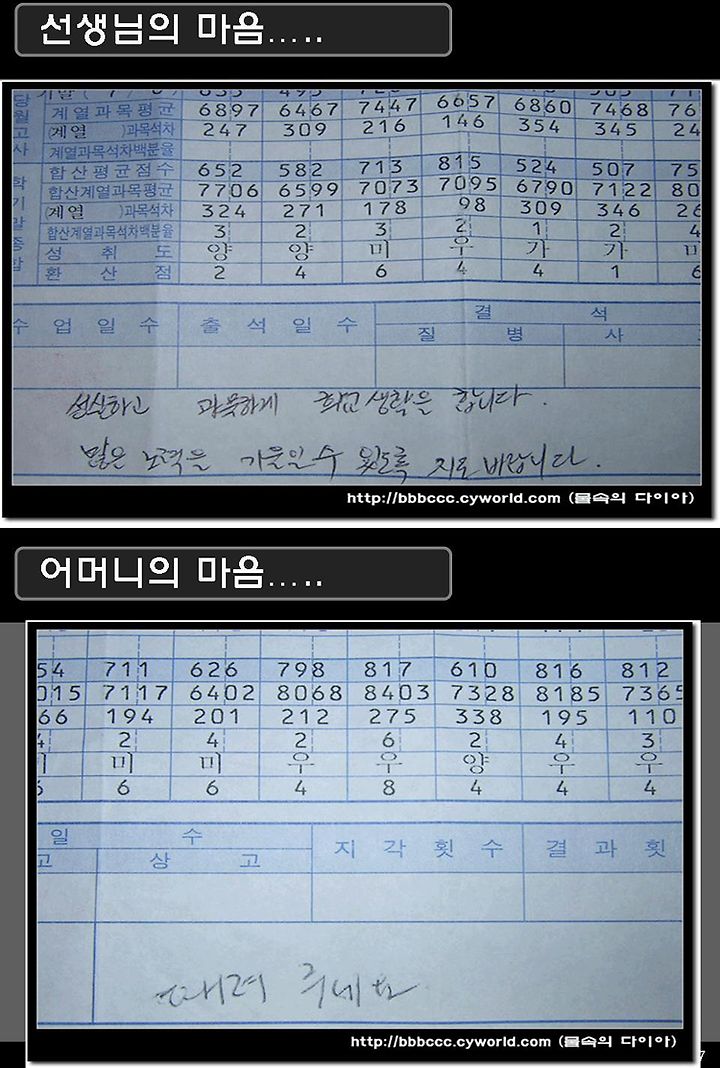 선생님의 마음.....
당월고사
계열과목평균 6897 6467 7447 6657 6860 7468 76
(계열 )과목석차 247 309 216 146 354 345 24
계열과목석차백분율
학기말종합
합산평균점수 652 582 713 815 524 507 75
합산계열과목평균 7706 6599 7073 7095 6790 7122 80
(계열 )과목석차 324 271 178 98 309 346 26
합산계열과목석차백분율 3 2 3 2 1 2 4
성취도 양 양 미 우 가 가 미
환산점 2 4 6 4 4 1 6
수업일수 출석일수 결 석
질 병 사
성실하고 과묵하게 학교 생활을 합니다.
많은 노력을 기울일 수 있도록 지도 바랍니다.
http://bbbccc.cyworld.com (물속의 다이아)
어머니의 마음.....
54 711 626 798 817 610 816 812
015 7117 6402 8068 8403 7328 8185 7365
66 194 201 212 275 338 195 110
4 2 4 2 6 2 4 3
미 미 우 우 양 우 우
6 6 4 8 4 4 4
일 수 지각횟수 결과횟
고 상 고
때려 주세요
http://bbbccc.cyworld.com (물속의 다이아)
7